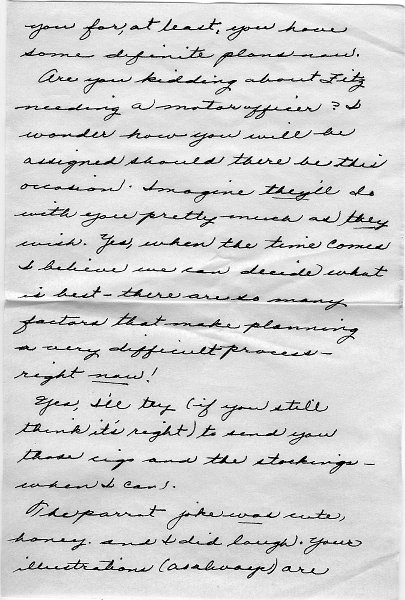 you for, at least, you have
some definite plans now.
Are you kidding about Fitz
needing a motor officer? I
wonder how you will be
assigned should there be this
occasion. Imagine they'll do
with you pretty much as they
wish. Yes, when the time comes
I believe we can decide what
is best - there are so many
factors that make planning
a very difficult process -
right now!
Yes, I'll try (if you still
think it's right) to send you
those cigs and the stockings -
when I can!
The parrot joke was cute,
honey. and I did laugh. Your
illustrations (as always) are